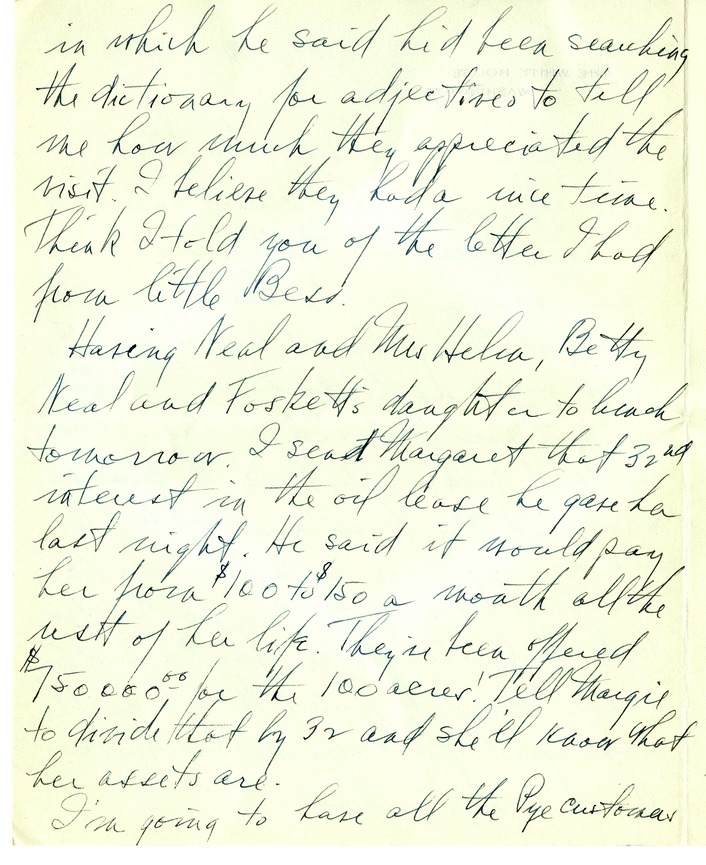 in which he said hid been searching
the dictionary for adjectives to tell
me how much they appreciated the
visit. I believe they had a nice time.
Think I told you of the letter I had
from little Bess.
Having Neal and Mrs Helm, Betty
Neal and Foskett's daughter to lunch
tomorrow. I send Margaret that 32nd
interest in the oil lease he gave her
last night. He said it would pay
her from $100 to $150 a month all the
rest of her life. They've been offered
$750000.00 for the 100 acres! Tell Margie
to divide that by 32 and she'll know what
her assets are.
I'm going to have all the Pye customers